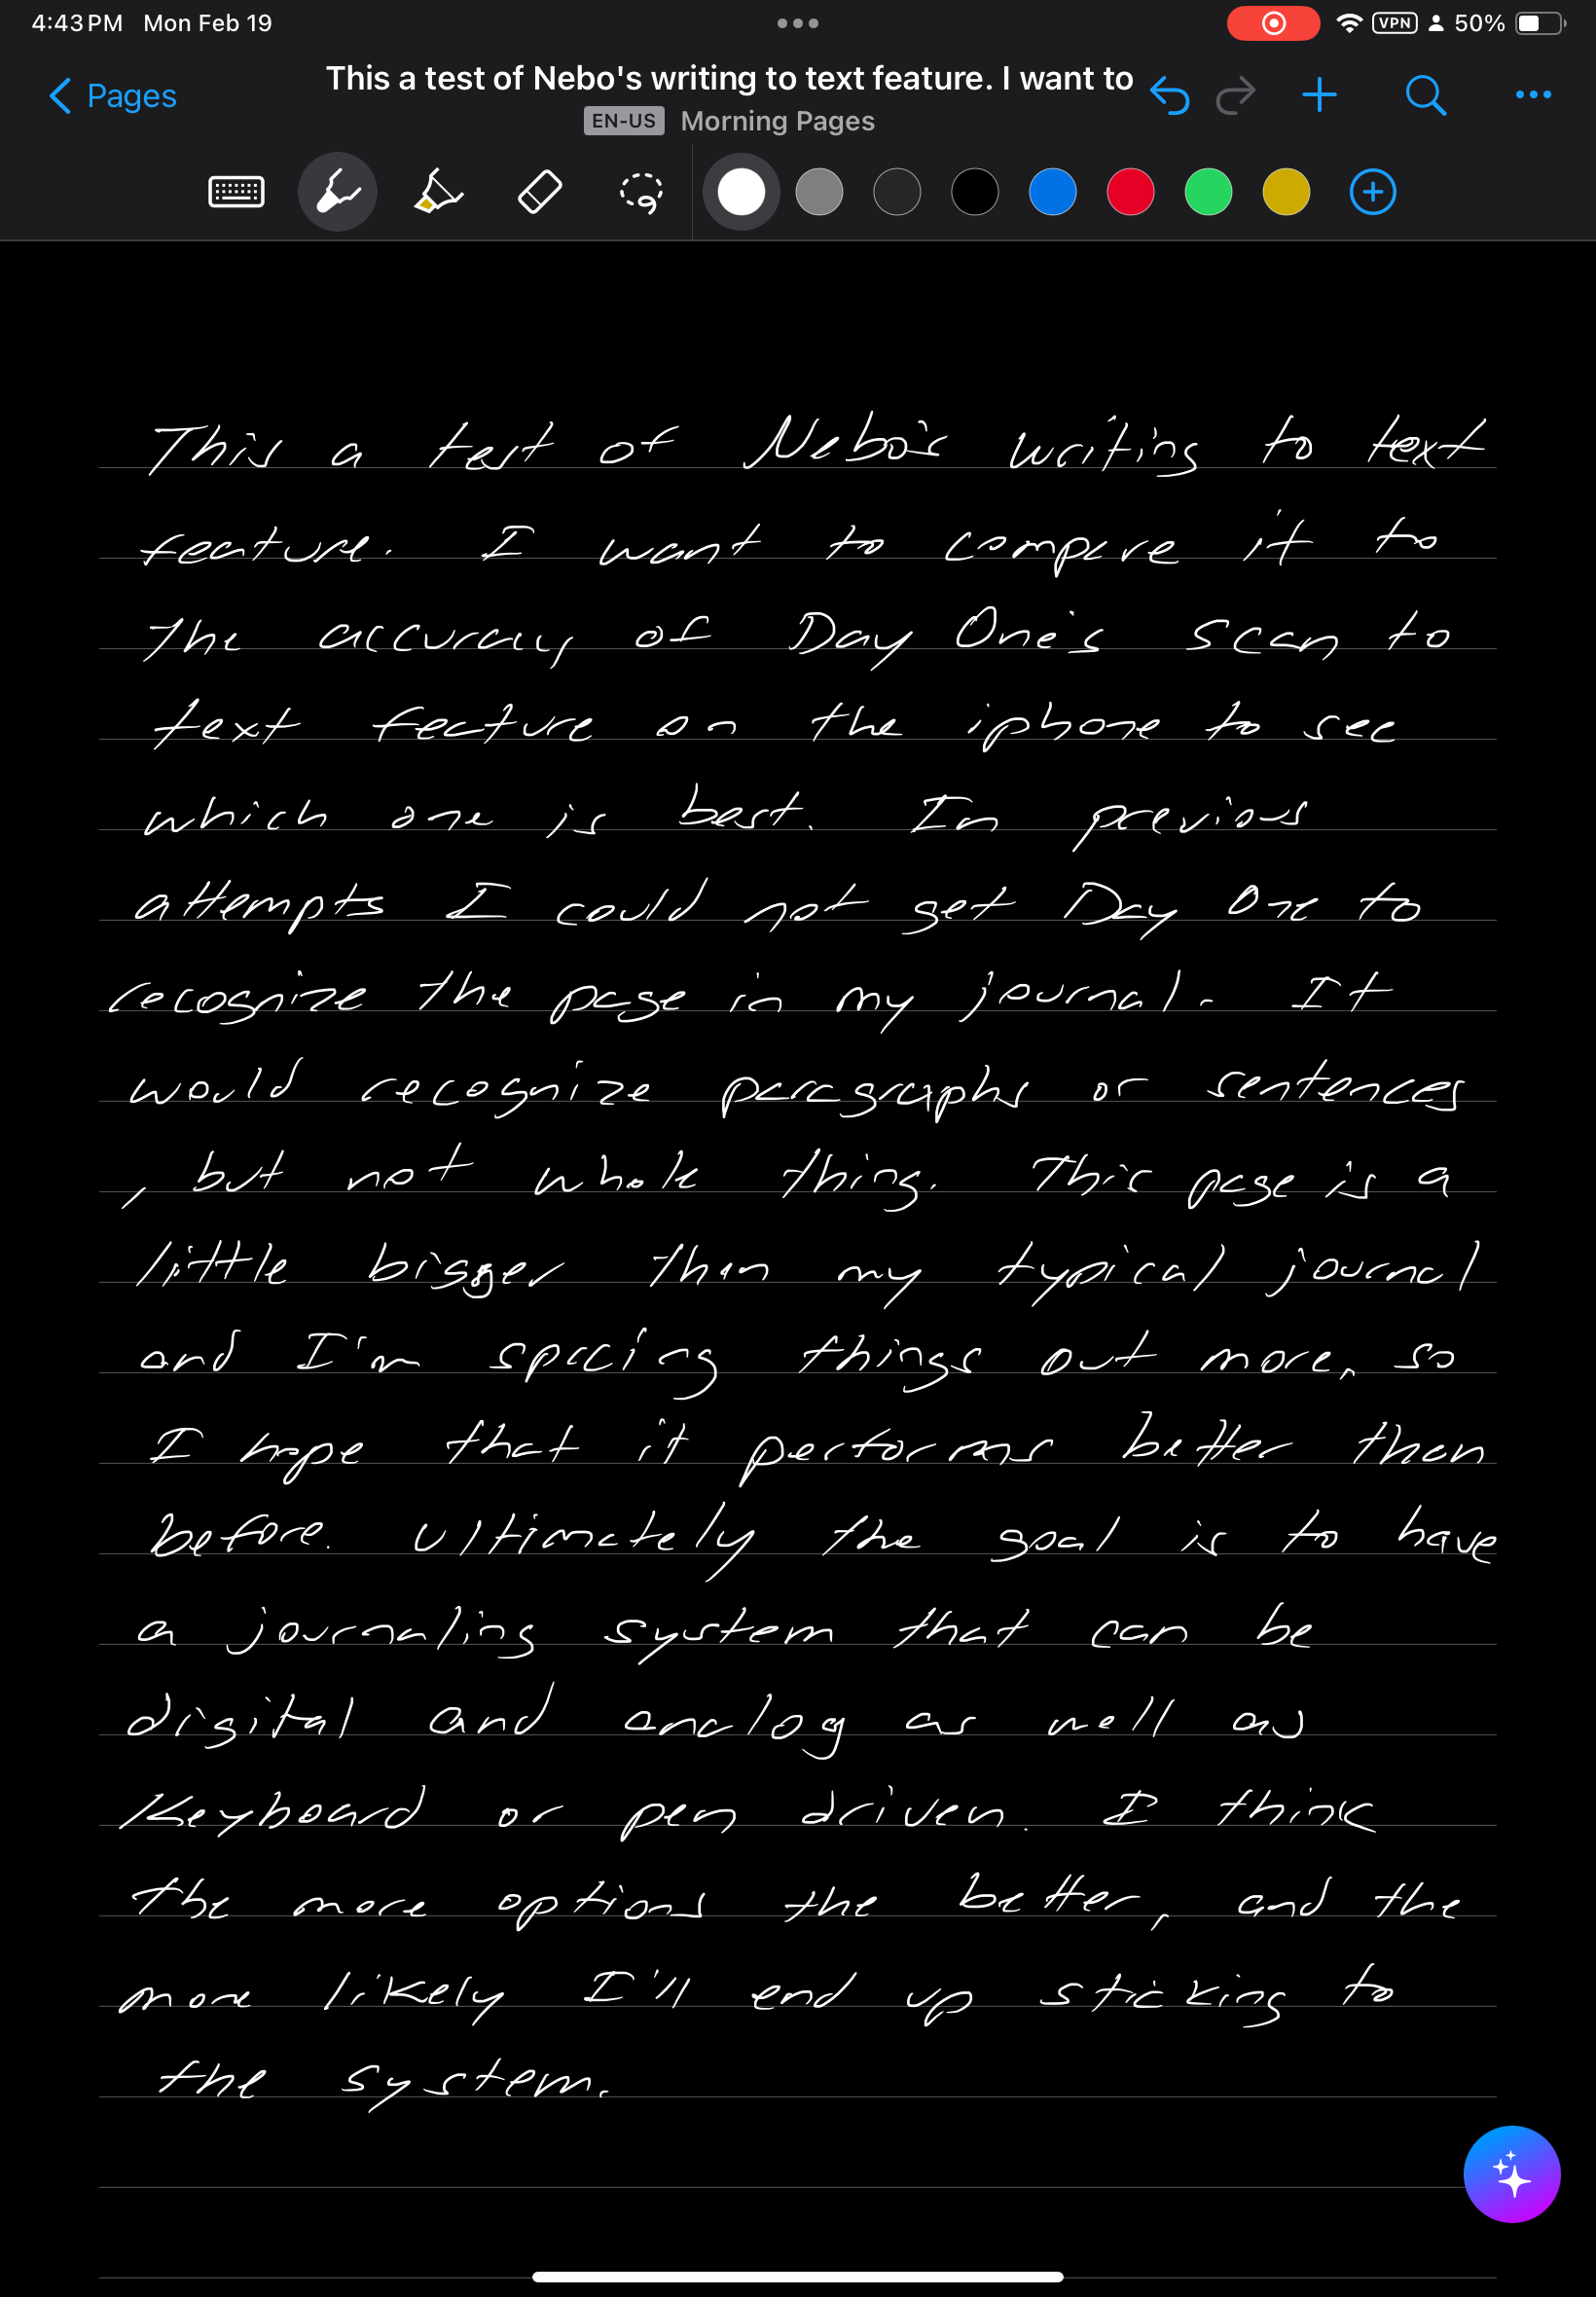 4:43 PM Mon Feb 19 VPN 50%
Pages This a test of Nebo's writing to text feature. I want to
EN-US Morning Pages
This a test of Nebo's writing to text
feature. I want to compare it to
the accuracy of Day One's scan to
text feature on the iphone to see
which one is best. In previous
attempts I could not get Day One to
recognize the page in my journal. It
would recognize paragraphs or sentences
, but not whole thing. This page is a
little bigger than my typical journal
and I'm spacing things out more, so
I hope that it performs better than
before. Ultimately the goal is to have
a journaling system that can be
digital and analog as well as
Keyboard or pen driven. I think
the more options the better, and the
more likely I'll end up sticking to
the system.